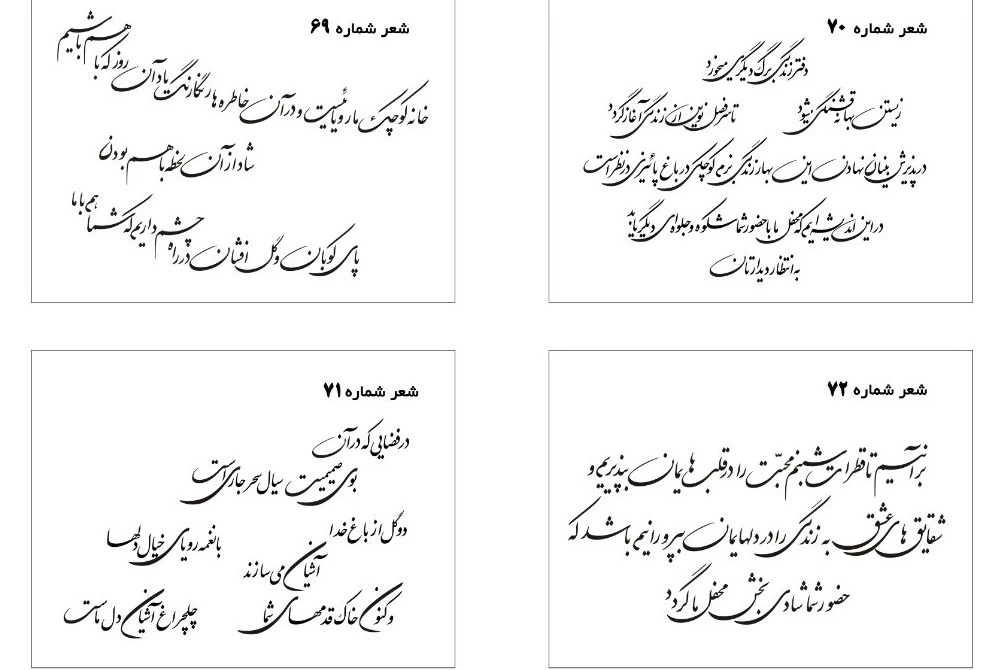 شعر شماره ۷۰
دفتر زندگی برگ دیگری میخورد
زیستن بهانه قشنگی میشود
تا سر فصل نوین از زندگی آغاز گردد
در پذیرش بنیان نهادن این بهار زندگی نرم کوچکی در باغ پائیزی در نظر است
در این اندیشه ایم که محفل ما با حضور شما شکوه و جلوه ای دیگر یابد
به انتظار دیدارتان
شعر شماره ۶۹
خانه کوچک ما رویائیست و در آن خاطره ها رنگارنگ یاد آن روز که با هم باشیم
شاد از آن لحظه با هم بودن
پای کوبان و گل افشان در راه چشم داریم که شما هم با ما
شعر شماره ۷۲
برآنیم تا قطرات شبنم محبّت را در قلب هایمان بپذیریم و
شقایق های عشق به زندگی را در دلهایمان بپرورانیم باشد که
حضور شما شادی بخش محفل ما گردد
شعر شماره ۷۱
در فضایی که در آن
بوی صمیمیت سیال سحر جاری است
دو گل از باغ خدا
با نغمه رویای خیال دلها
آشیان می سازند
و کنون خاک قدمهای شما
چلچراغ آشیان دل ماست